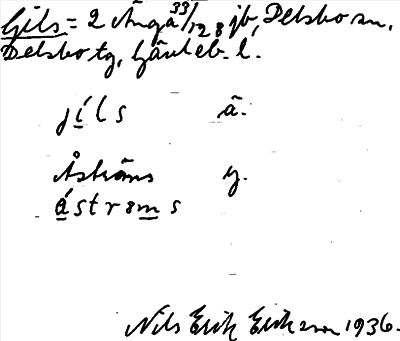 Gils = 2 Änga 33/128 jb, Delsbo sn,
Delsbo tg, Gävleb. l.
jíls ä.
Åströms y.
ástrɜms
Nils Erik Eriksson 1936.